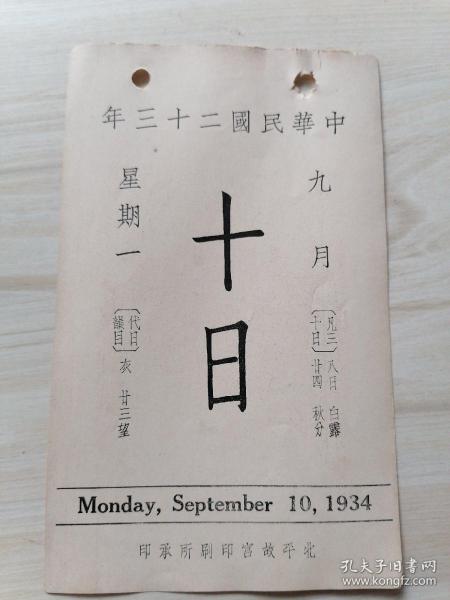 中華民國二十三年
九月
十日
星期一
〔凡三十日〕
八日 白露
廿四 秋分
〔代日韻目〕
灰 廿三望
Monday, September 10, 1934
北平故宮印刷所承印
孔夫子旧书网
www.kongfz.com